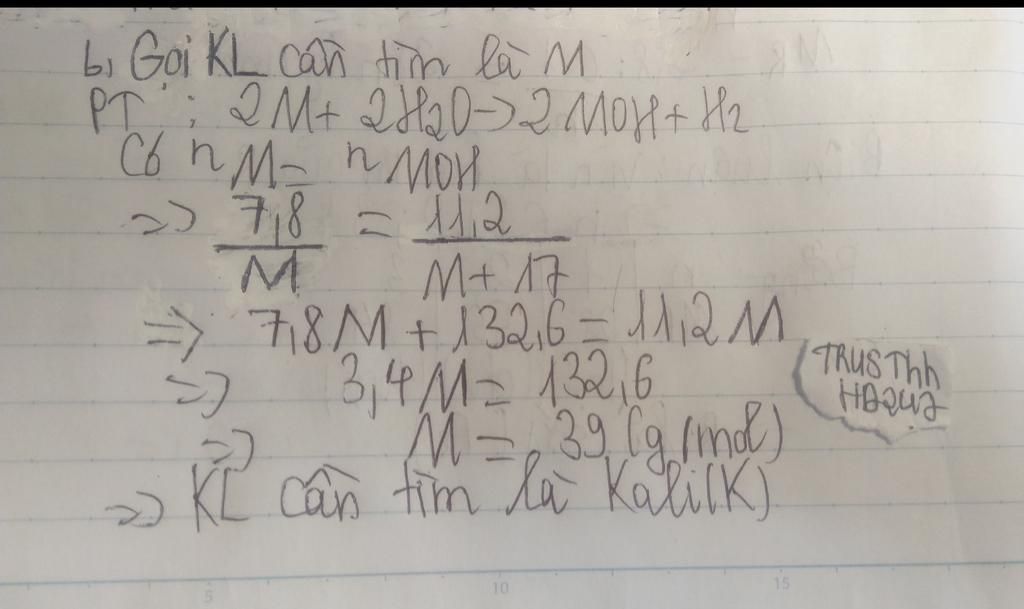 b, Gọi KL cần tìm là M
PT : 2M + 2H2O -> 2MOH + H2
Có nM = nMOH
=> 7,8 / M = 11,2 / M + 17
=> 7,8M + 132,6 = 11,2M
=> 3,4M = 132,6
=> M = 39 (g/mol)
=> KL cần tìm là Kali(K)
TRUSThh
HB247
5 10 15